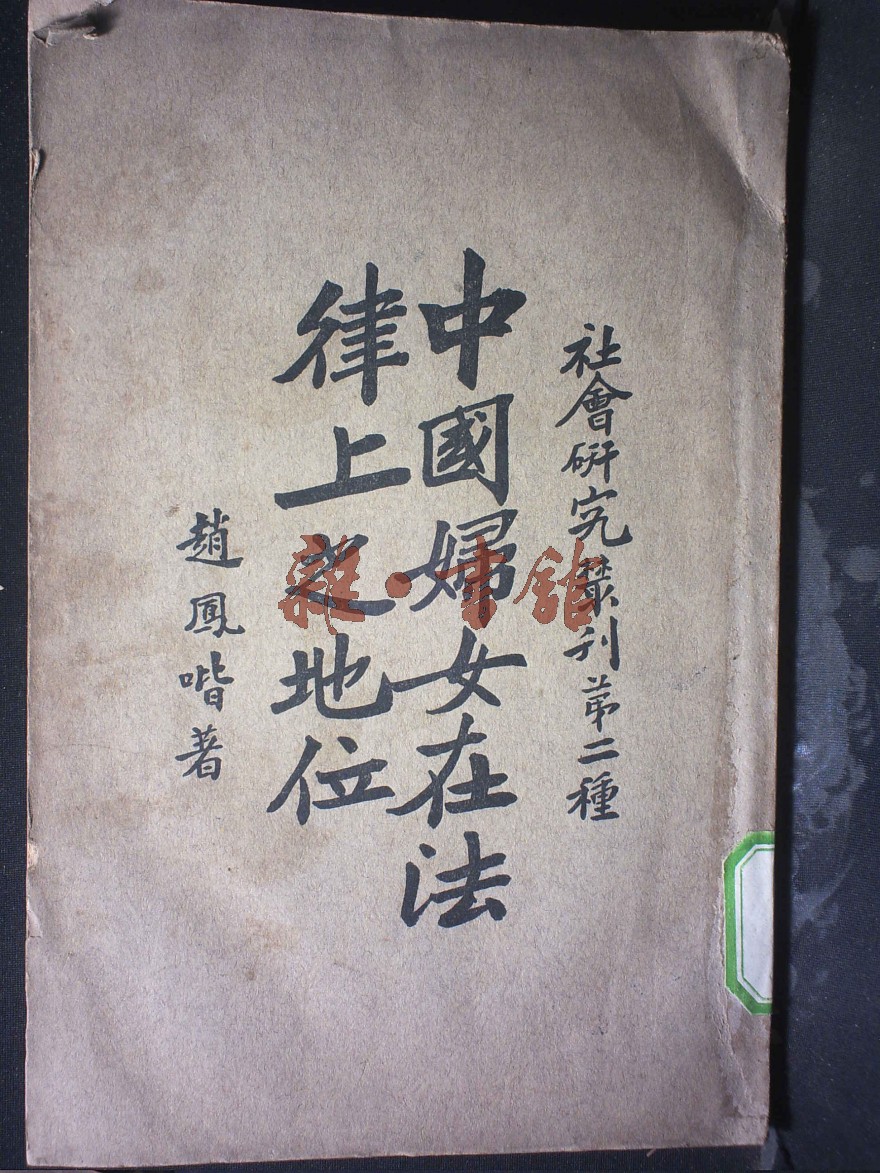 社會研究叢刊第二種
中國婦女在法
律上之地位
趙鳳喈著
雜·書館